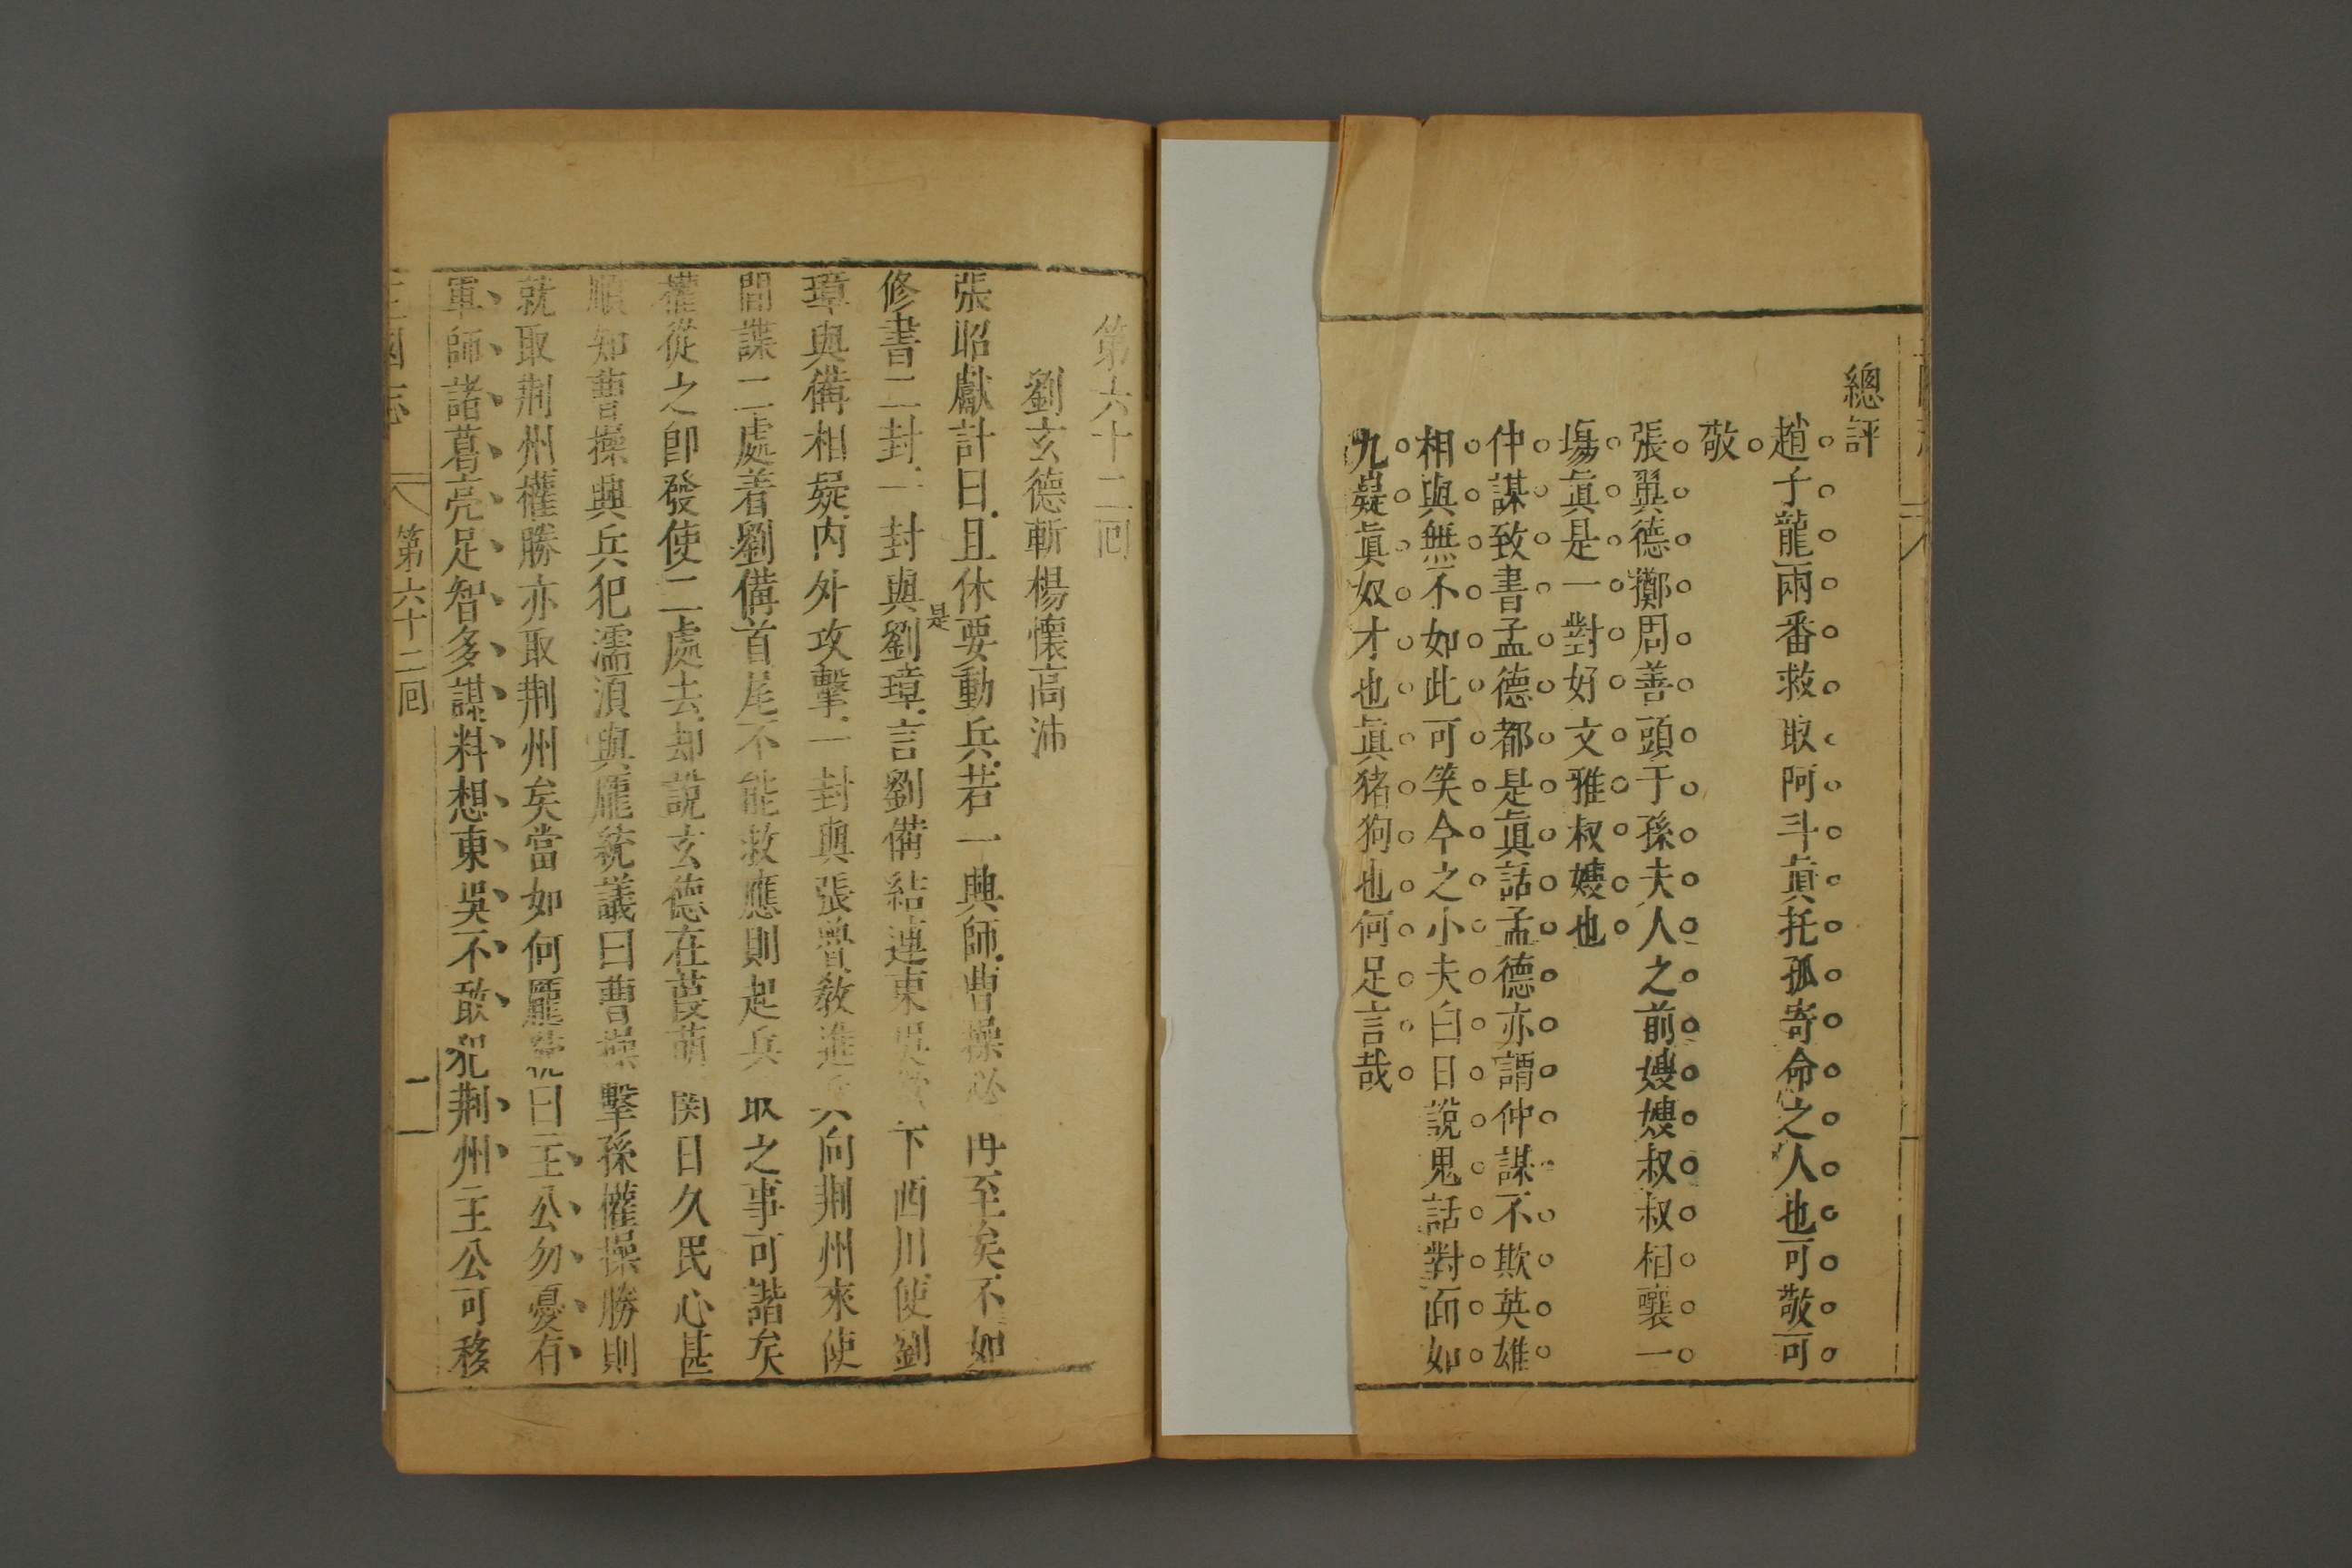 總評
趙子龍兩番救取阿斗眞托孤寄命之人也可敬可
敬
張翼德擲周善頭于孫夫人之前嫂嫂叔叔相襄一
塲眞是一對好文雅叔嫂也
仲謀致書孟德都是眞話孟德亦謂仲謀不欺英雄
相與無不如此可笑今之小夫白日說鬼話對面如
九嶷眞奴才也眞猪狗也何足言哉
第六十二回
劉玄德斬楊懷高沛
張昭獻計曰且休要動兵若一興師曹操必再至矣不如
修書二封一封與劉璋言劉備結連東吳下西川使劉
是
璋與備相疑内外攻擊一封與張魯教進兵向荆州來使
間諜二處着劉備首尾不能救應則起兵取之事可諧矣
權從之卽發使二處去却說玄德在葭萌関日久民心甚
順知曹操興兵犯濡須與龐統議曰曹操擊孫權操勝則
就取荆州權勝亦取荆州矣當如何龐統曰主公勿憂有
軍師諸葛亮足智多謀料想東吳不敢犯荆州主公可移
三國志
第六十二回
二